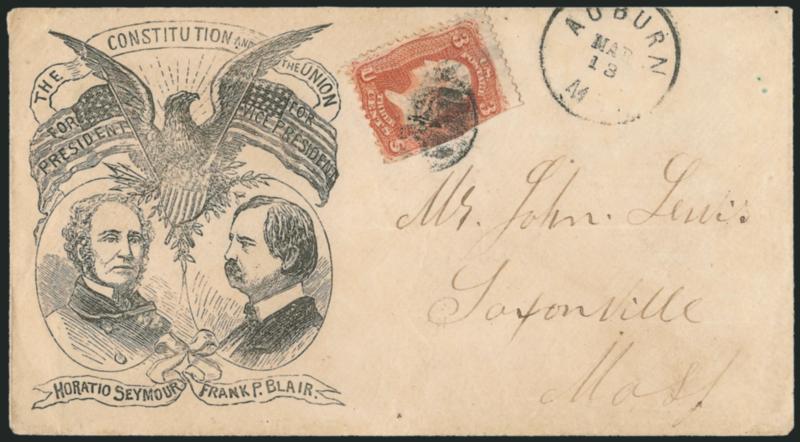 THE CONSTITUTION AND THE UNION
FOR PRESIDENT
FOR VICE PRESIDENT
HORATIO SEYMOUR
FRANK P. BLAIR.
3 U.S. POSTAGE 3
U THREE CENTS S
AUBURN
MAR
13
Mr. John. Lewis
Saxonville
Mass